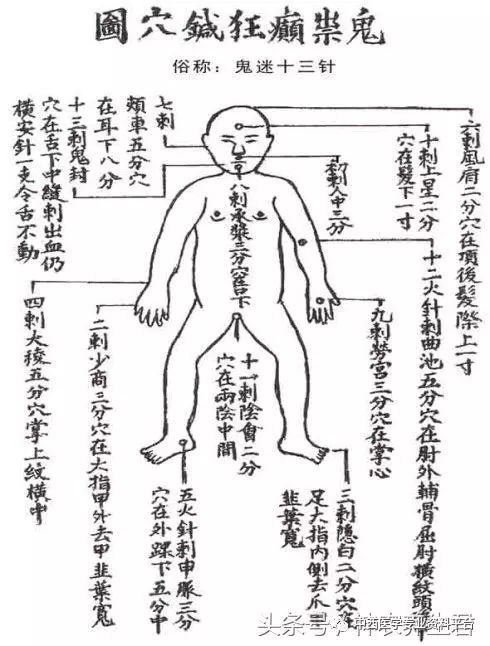 鬼祟癲狂鍼穴圖
俗称：鬼迷十三针
六刺風府二分穴在項後髮際上一寸
十刺上星二分
穴在髮下一寸
十二火針刺曲池五分穴在肘外輔骨屈肘橫紋頭
刺人中三分
九刺勞宮三分穴在掌心
三刺隱白二分穴在
足大指內側去爪
韭葉寬
八刺承漿三分
下
十一刺陰會二分
穴在兩陰中間
五火針刺申脈三分
穴在外踝下五分中
七刺
頰車五分穴
在耳下八分
十三刺鬼封
穴在舌下中縫刺出血仍
橫安針一支令舌不動
二刺少商三分穴在大指甲外去甲韭葉寬
四刺大陵五分穴掌上紋橫中
头条号
中西医学专业资料平台